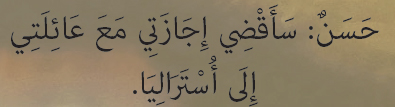 حَسَنٌ: سَأَقْضِي إِجَازَتِي مَعَ عَائِلَتِي
إِلَى أُسْتَرَالِيَا.